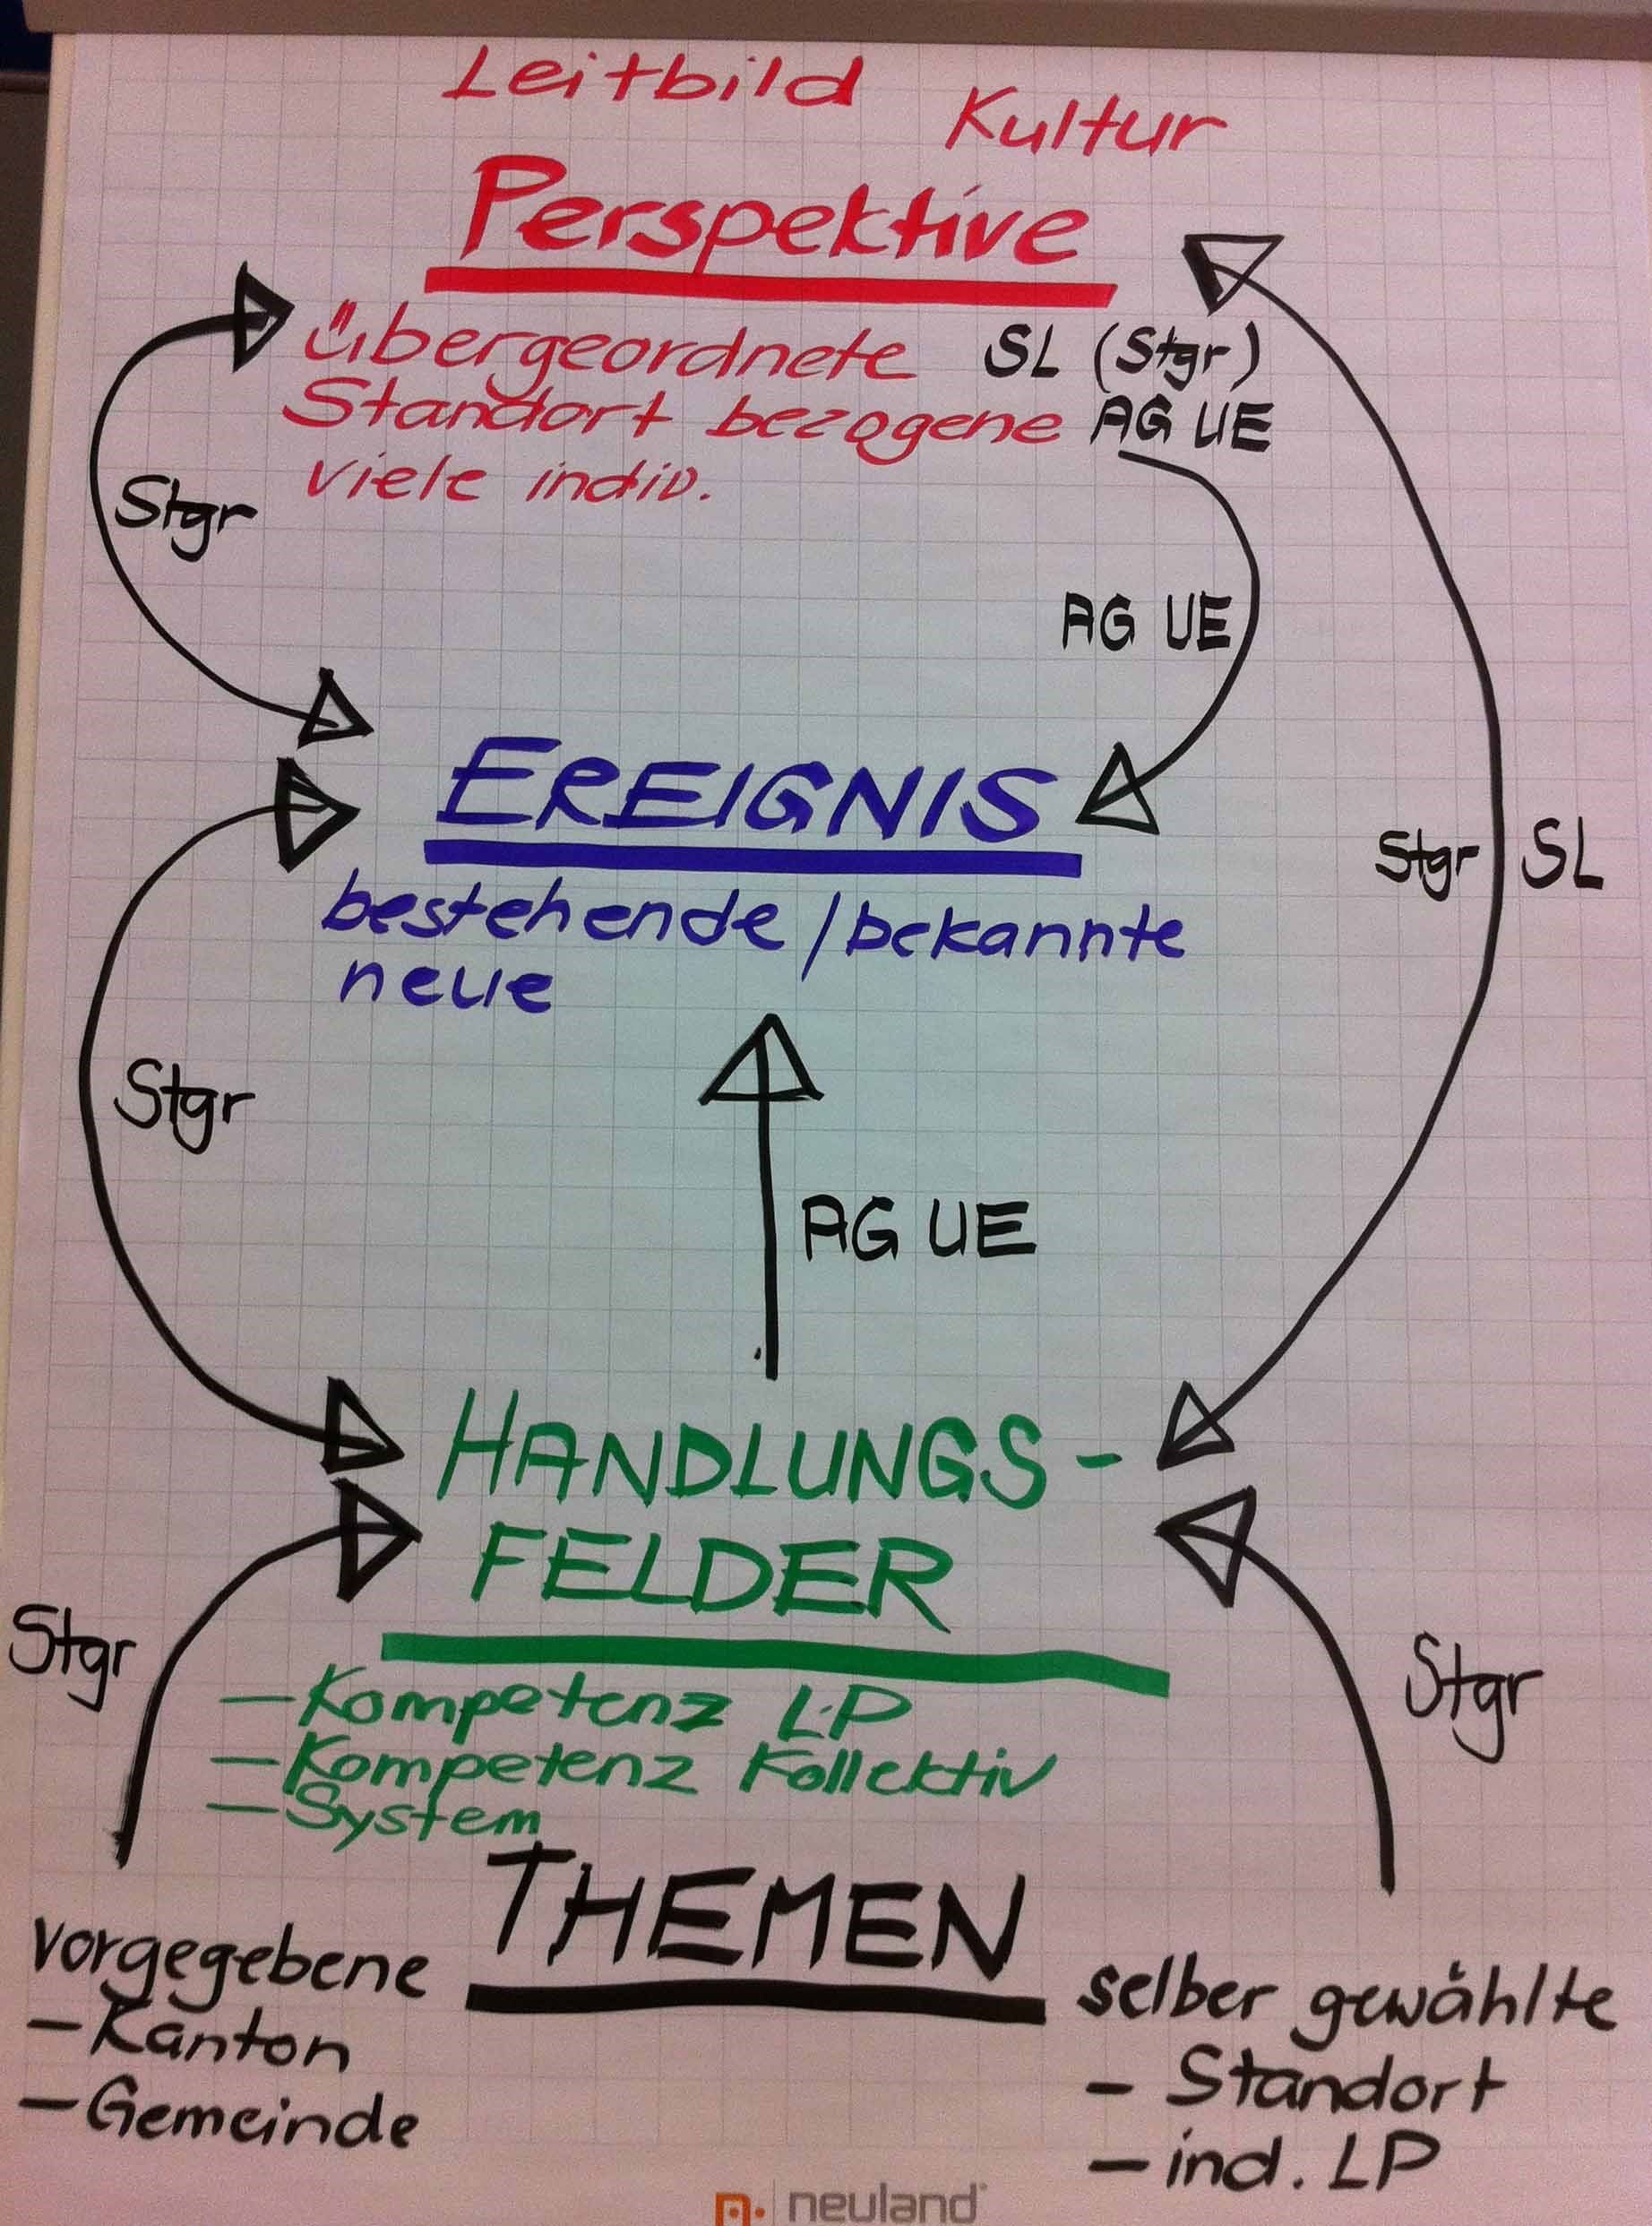 Leitbild
Kultur
Perspektive
übergeordnete SL (Stgr)
Standort bezogene AG UE
viele indiv.
Stgr
AG UE
EREIGNIS
bestehende / bekannte
neue
Stgr SL
Stgr
AG UE
HANDLUNGS-
FELDER
Stgr
Stgr
- Kompetenz LP
- Kompetenz Kollektiv
- System
THEMEN
vorgegebene
- Kanton
- Gemeinde
selber gewählte
- Standort
- ind. LP
n. neuland